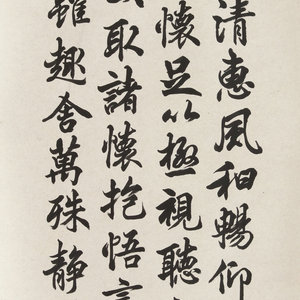 清惠風和暢仰
懷足以極視聽
取諸懷抱悟言
雖趣舍萬殊静